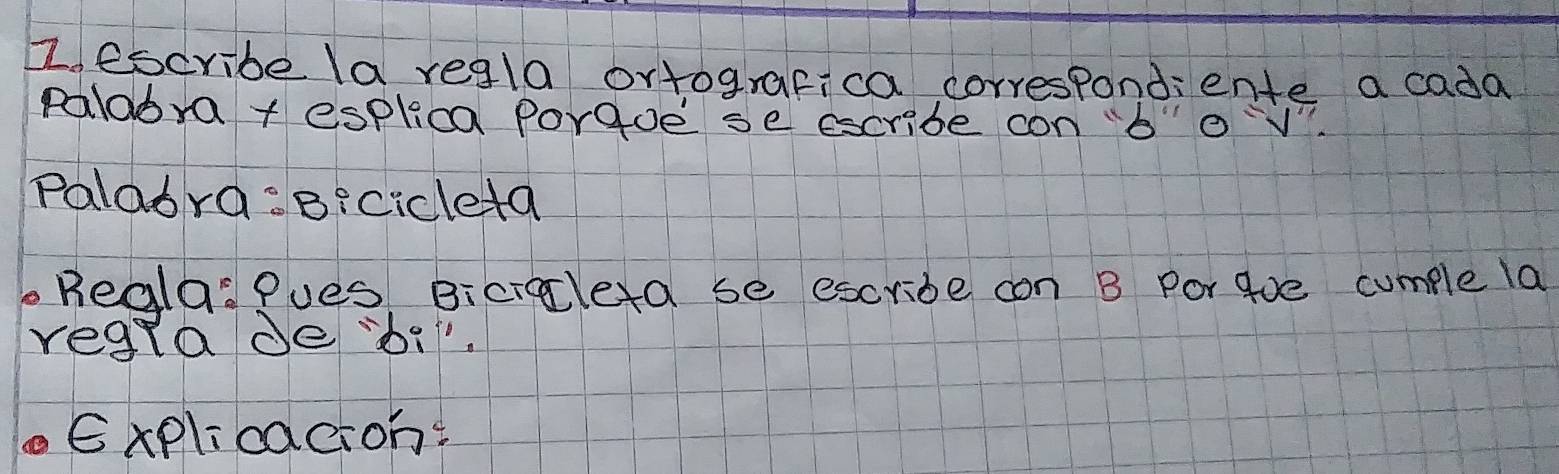 1. escribe la regla ortografica correspondiente a cada
palabra y esplica porqué se escribe con "b" o "v".
Palabra: Bicicleta
• Regla: Pues Bicicleta se escribe con B por que cumple la
regla de "bi".
• Explicación: